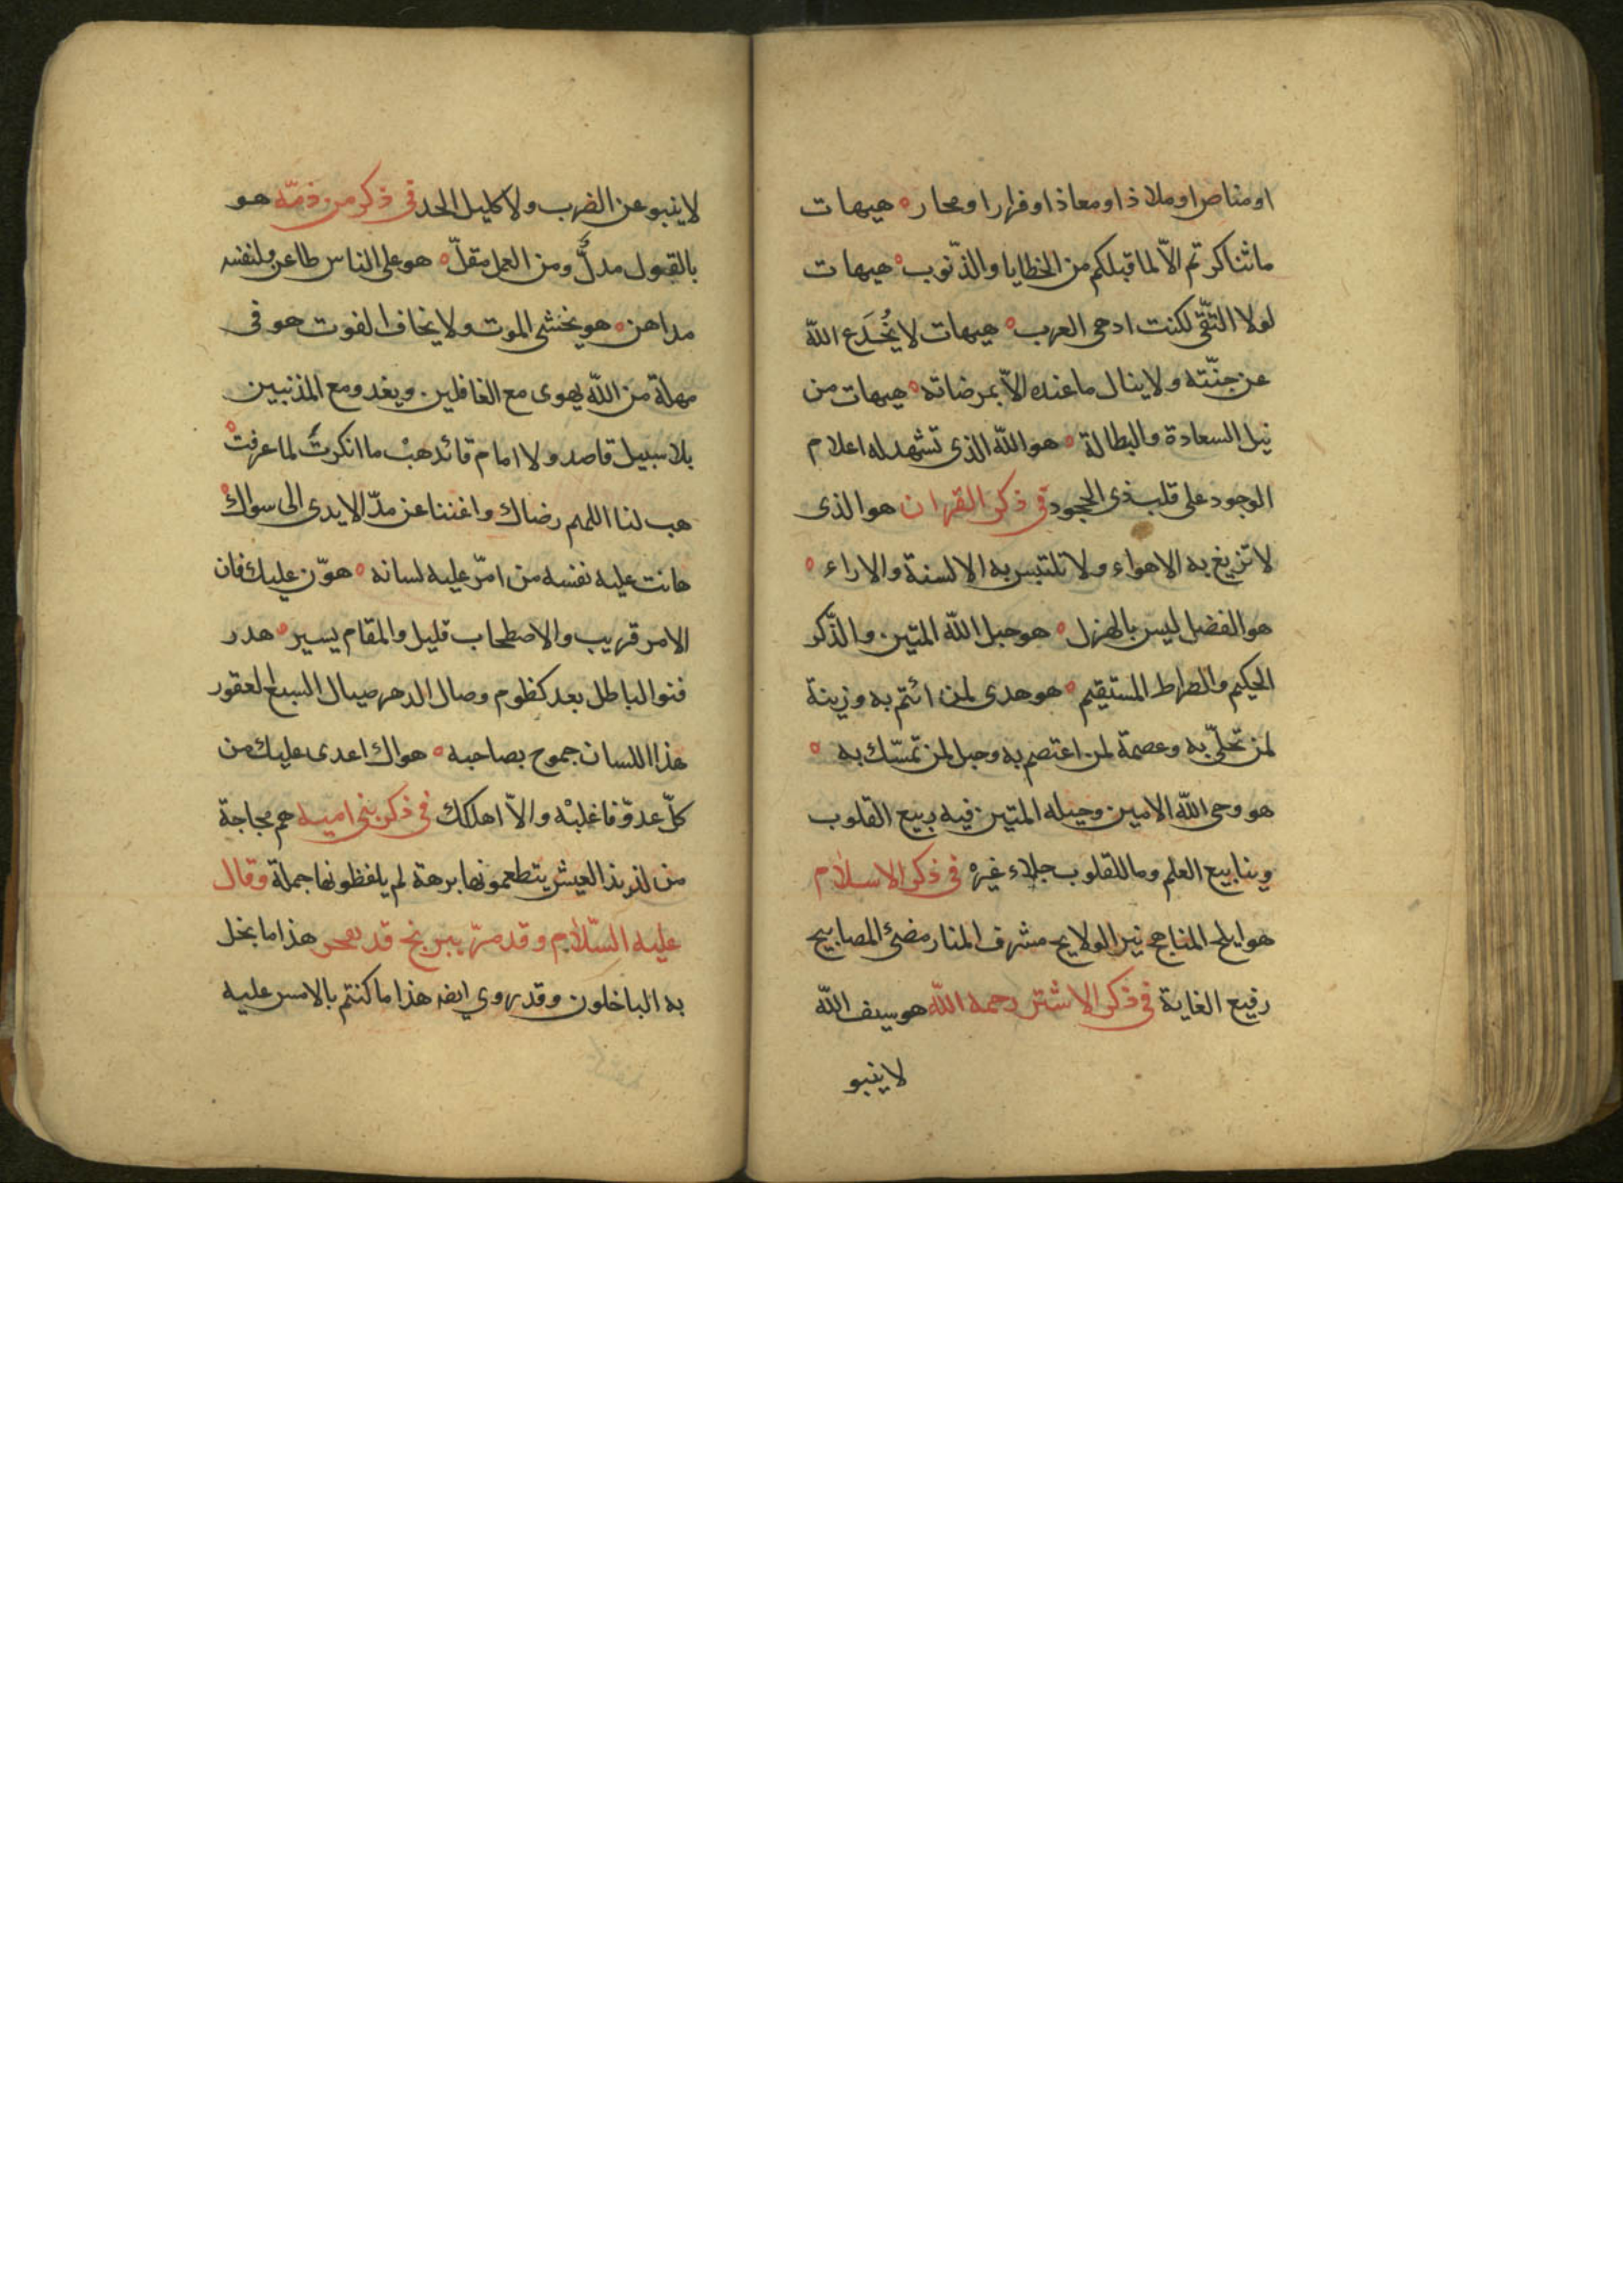 او مناص او ملاذ او معاذ او فرار او محار ه هيهات
ما تناكرتم الّا لما قبلكم من الخطايا والذّنوب ه هيهات
لولا التّقى لكنت ادهى العرب ه هيهات لا يُخْدَع اللّه
عن جنّته ولا ينال ما عنده الّا بمرضاته ه هيهات من
نيل السعادة والبطالة ه هو اللّه الذى تشهد له اعلام
الوجود على قلب ذى الجحود فى ذكر القران هو الذى
لا تزيغ به الاهواء ولا تلتبس به الالسنة والاراء ه
هو الفضل ليس بالهزل ه هو حبل اللّه المتين والذّكر
الحكيم والصراط المستقيم ه هو هدى لمن ائتم به وزينة
لمن تحلّى به وعصمة لمن اعتصم به وحبل لمن تمسّك به ه
هو وحى اللّه الامين وحبله المتين فيه ربيع القلوب
وينابيع العلم وما للقلوب جلاء غيره فى ذكر الاسلام
هو ابلج المناهج نير الولايج مشرف المنار مضئ المصابيح
رفيع الغاية فى ذكر الاشتر رحمه اللّه هو سيف اللّه
لا ينبو
لا ينبو عن الضرب ولا كليل الحد فى ذكر من ذمّه هو
بالقول مدلٌّ ومن العمل مقلّ ه هو على الناس طاعن ولنفسه
مداهن ه هو يخشى الموت ولا يخاف الفوت هو فى
مهلة من اللّه يهوى مع الغافلين ويغدو مع المذنبين
بلا سبيل قاصد ولا امام قائد هبْ ما انكرتَ لما عرفت ه
هب لنا اللهم رضاك واغننا عن مدّ الايدى الى سواك ه
هانت عليه نفسه من امّر عليه لسانه ه هوّن عليك فان
الامر قريب والاصطحاب قليل والمقام يسير ه هدر
فنو الباطل بعد كظوم وصال الدهر صيال السبع العقور
هذا اللسان جموح بصاحبه ه هواك اعدى عليك من
كلّ عدوّ فاغلبْه والّا اهلكك فى ذكر بنى امية هم مجاجة
من لذيذ العيش يتطعمونها برهة لم يلفظونها جملة وقال
عليه السّلام وقد مرّ ببربخ قد هذا ما بخل
به الباخلون وقد روي ايضا هذا ما كنتم بالامس عليه